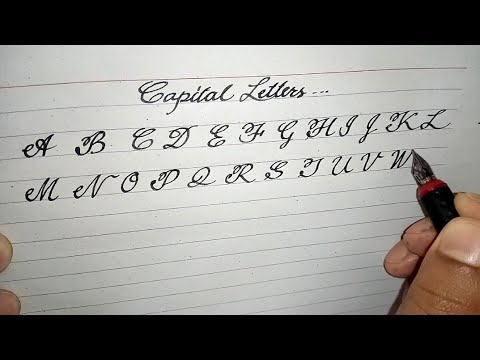 Capital Letters...
A B C D E F G H I J K L
M N O P Q R S T U V W